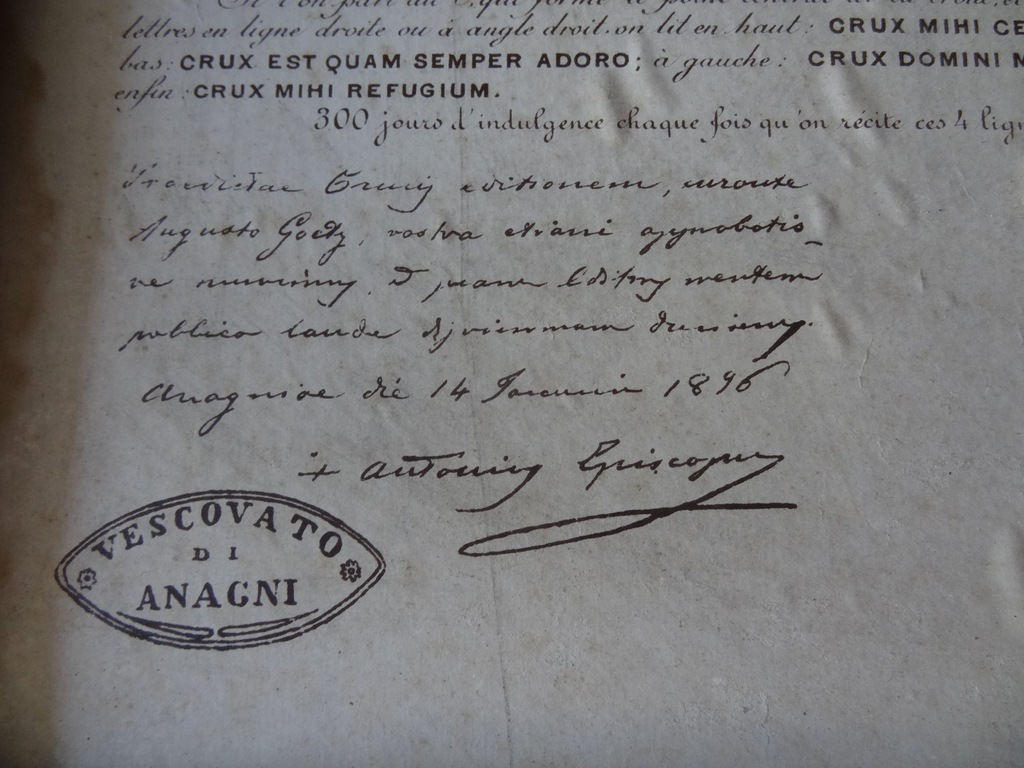 lettres en ligne droite ou à angle droit, on lit en haut: CRUX MIHI CE
bas: CRUX EST QUAM SEMPER ADORO; à gauche: CRUX DOMINI M
enfin: CRUX MIHI REFUGIUM.
300 jours d'indulgence chaque fois qu'on récite ces 4 lig
Crucis editionem,
Augusto Goetz, nostra etiam approbatio_
ne munimus, &
publica laude
Anagniae die 14 Januarii 1896
+ Antonius Episcopus
VESCOVATO
DI
ANAGNI